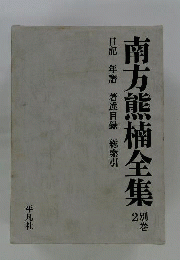 南方熊楠全集
別巻
2
日記 年譜 著述目録 総索引
平凡社